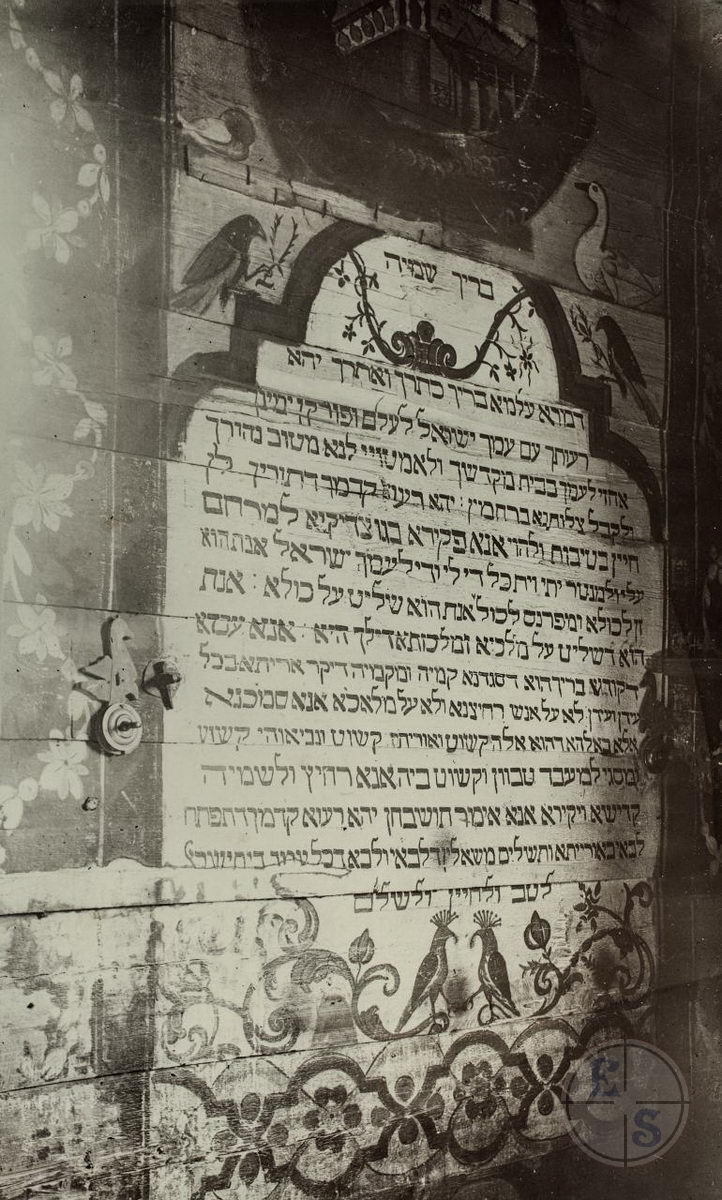 בריך שמיה
דמרא עלמא בריך כתרך ואתרך יהא
רעותך עם עמך ישראל לעלם ופורקן ימינך
אחזי לעמך בבית מקדשך ולאמטויי לנא מטוב נהירך
ולקבל צלותנא ברחמין : יהא רעוא קדמך דתוריך לן
חיין בטיבות ולהוי אנא פקידא בגו צדיקיא למרחם
עלי ולמנטר יתי וית כל די לי ודי לעמך ישראל אנת הוא
זן לכולא ומפרנס לכולא אנת הוא שליט על כולא : אנת
הוא דשליט על מלכיא ומלכותא דילך היא : אנא עבדא
דקודשא בריך הוא דסגדנא קמיה ומקמיה דיקר אוריתא בכל
עידן ועידן לא על אנש רחיצנא ולא על מלאכא אנא סמכנא
אלא באלהא דהוא אלהא קשוט ואוריתיה קשוט ונביאוהי קשוט
ומסגי למעבד טבוון וקשוט ביה אנא רחיץ ולשמיה
קדישא ויקירא אנא אימר תושבחן יהא רעוא קדמך דתפתח
לבאי באוריתא ותשלים משאלין דלבאי ולבא דכל עמך בית ישראל
לטב ולחיין ולשלם
E S